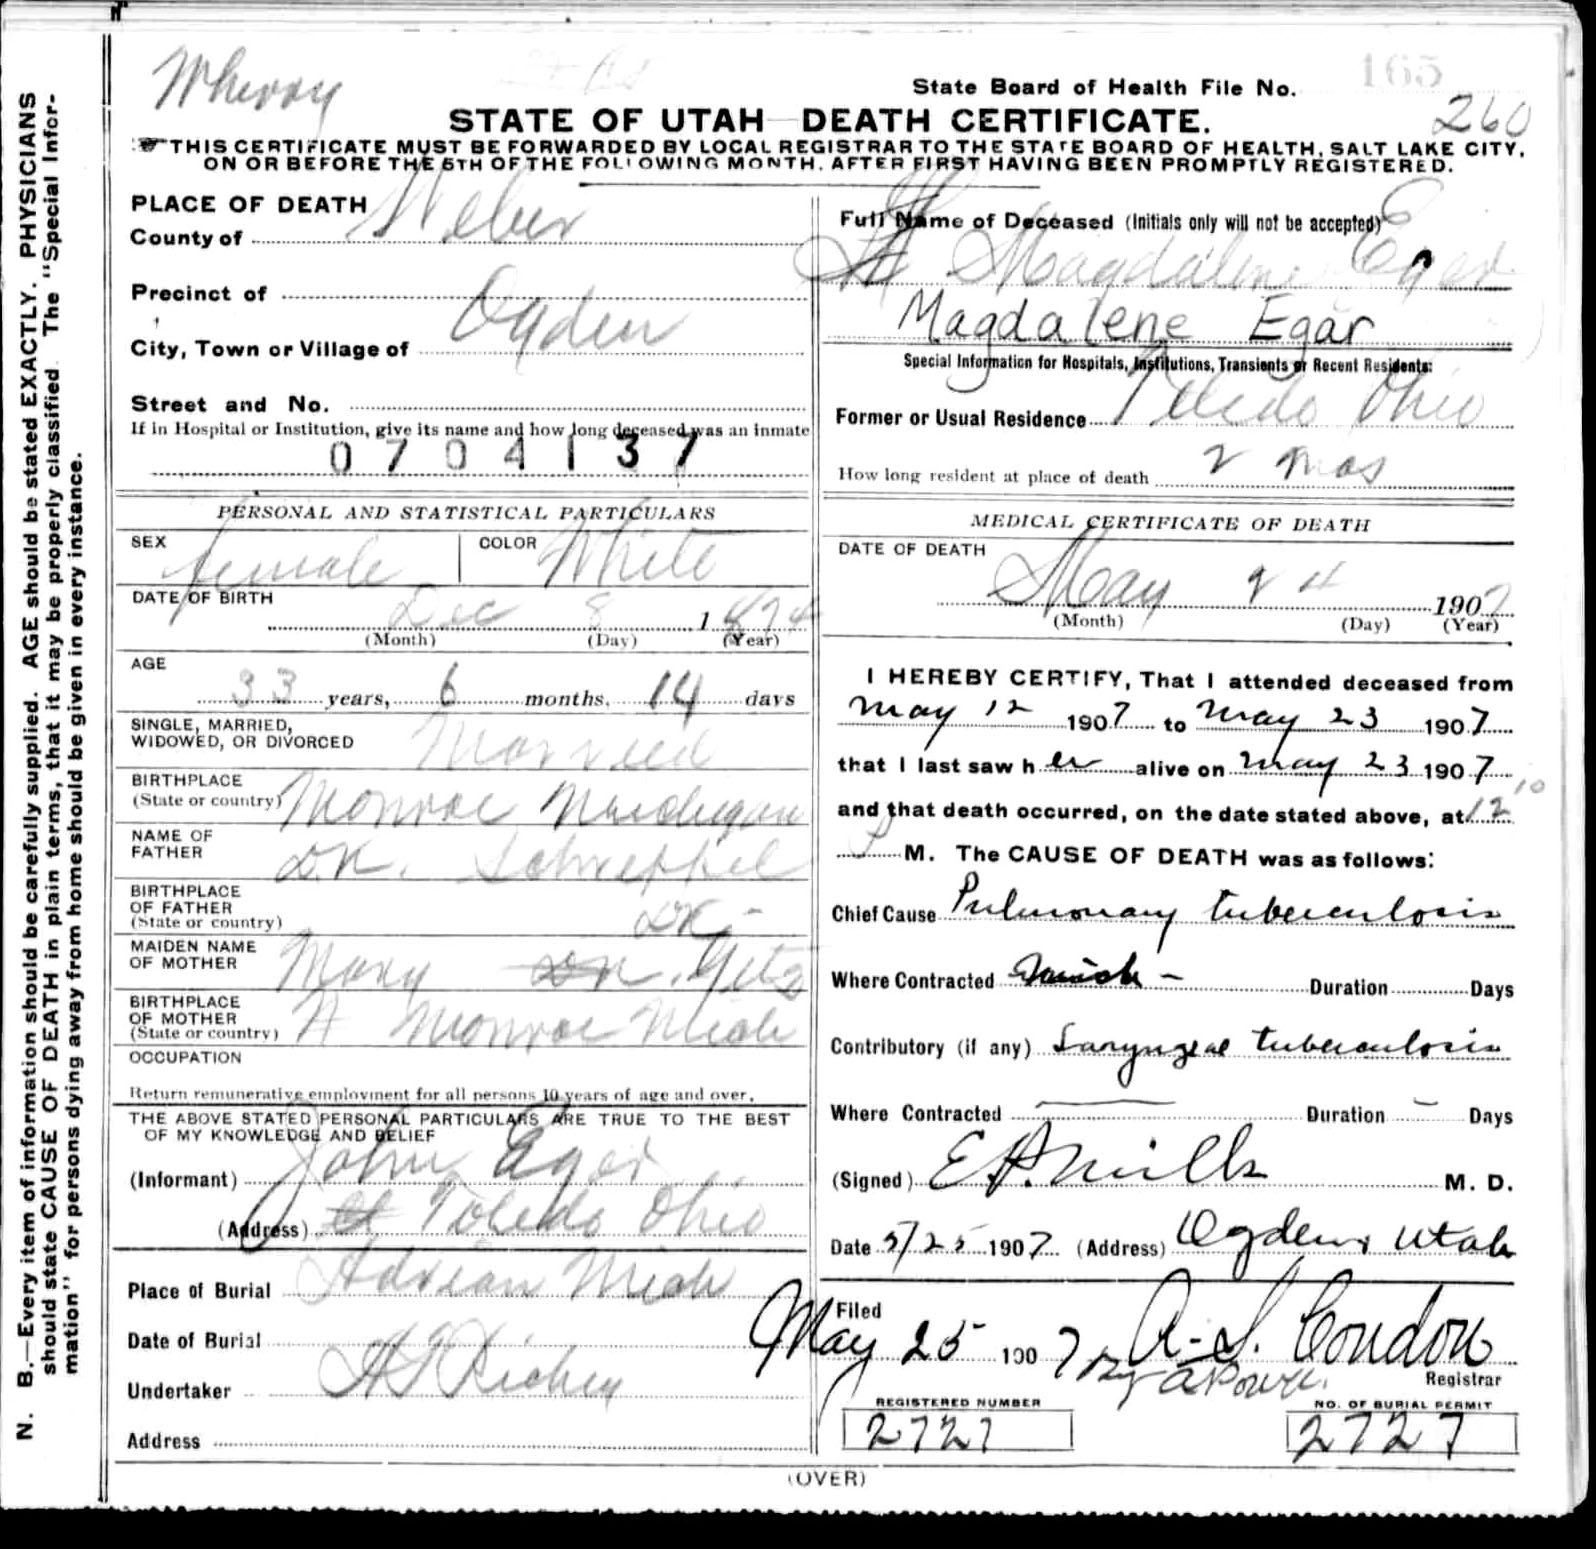 Wherry
State Board of Health File No. 165
260
STATE OF UTAH DEATH CERTIFICATE.
THIS CERTIFICATE MUST BE FORWARDED BY LOCAL REGISTRAR TO THE STATE BOARD OF HEALTH, SALT LAKE CITY,
ON OR BEFORE THE 5TH OF THE FOLLOWING MONTH, AFTER FIRST HAVING BEEN PROMPTLY REGISTERED.
N. B.—Every item of information should be carefully supplied. AGE should be stated EXACTLY. PHYSICIANS
should state CAUSE OF DEATH in plain terms, that it may be properly classified. The "Special Infor-
mation" for persons dying away from home should be given in every instance.
PLACE OF DEATH
County of Weber
Precinct of
City, Town or Village of Ogden
Street and No.
If in Hospital or Institution, give its name and how long deceased was an inmate
0704137
PERSONAL AND STATISTICAL PARTICULARS
SEX female COLOR White
DATE OF BIRTH Dec 8 1874
(Month) (Day) (Year)
AGE
33 years, 6 months, 14 days
SINGLE, MARRIED,
WIDOWED, OR DIVORCED Married
BIRTHPLACE
(State or country) Monroe Michigan
NAME OF
FATHER D.K. Schneppel
BIRTHPLACE
OF FATHER
(State or country) DK -
MAIDEN NAME
OF MOTHER Mary Getz
BIRTHPLACE
OF MOTHER
(State or country) Monroe Mich
OCCUPATION
Return remunerative employment for all persons 10 years of age and over.
THE ABOVE STATED PERSONAL PARTICULARS ARE TRUE TO THE BEST
OF MY KNOWLEDGE AND BELIEF
(Informant) John Eger
(Address) Toledo Ohio
Place of Burial Adrian Mich
Date of Burial
Undertaker Richey
Address
Full Name of Deceased (Initials only will not be accepted)
Magdalene Eger
Magdalene Egar
Special Information for Hospitals, Institutions, Transients or Recent Residents:
Former or Usual Residence Toledo Ohio
How long resident at place of death 2 mos
MEDICAL CERTIFICATE OF DEATH
DATE OF DEATH
May 24 1907
(Month) (Day) (Year)
I HEREBY CERTIFY, That I attended deceased from
May 12 1907 to May 23 1907
that I last saw her alive on May 23 1907
and that death occurred, on the date stated above, at 12 10
M. The CAUSE OF DEATH was as follows:
Chief Cause Pulmonary tuberculosis
Where Contracted Mich - Duration Days
Contributory (if any) Laryngeal tuberculosis
Where Contracted — Duration - Days
(Signed) E.P. Mills M. D.
Date 5/25 1907 (Address) Ogden, Utah
Filed
May 25 1907 A. S. Condon
Registrar
REGISTERED NUMBER
2727
NO. OF BURIAL PERMIT
2727
(OVER)